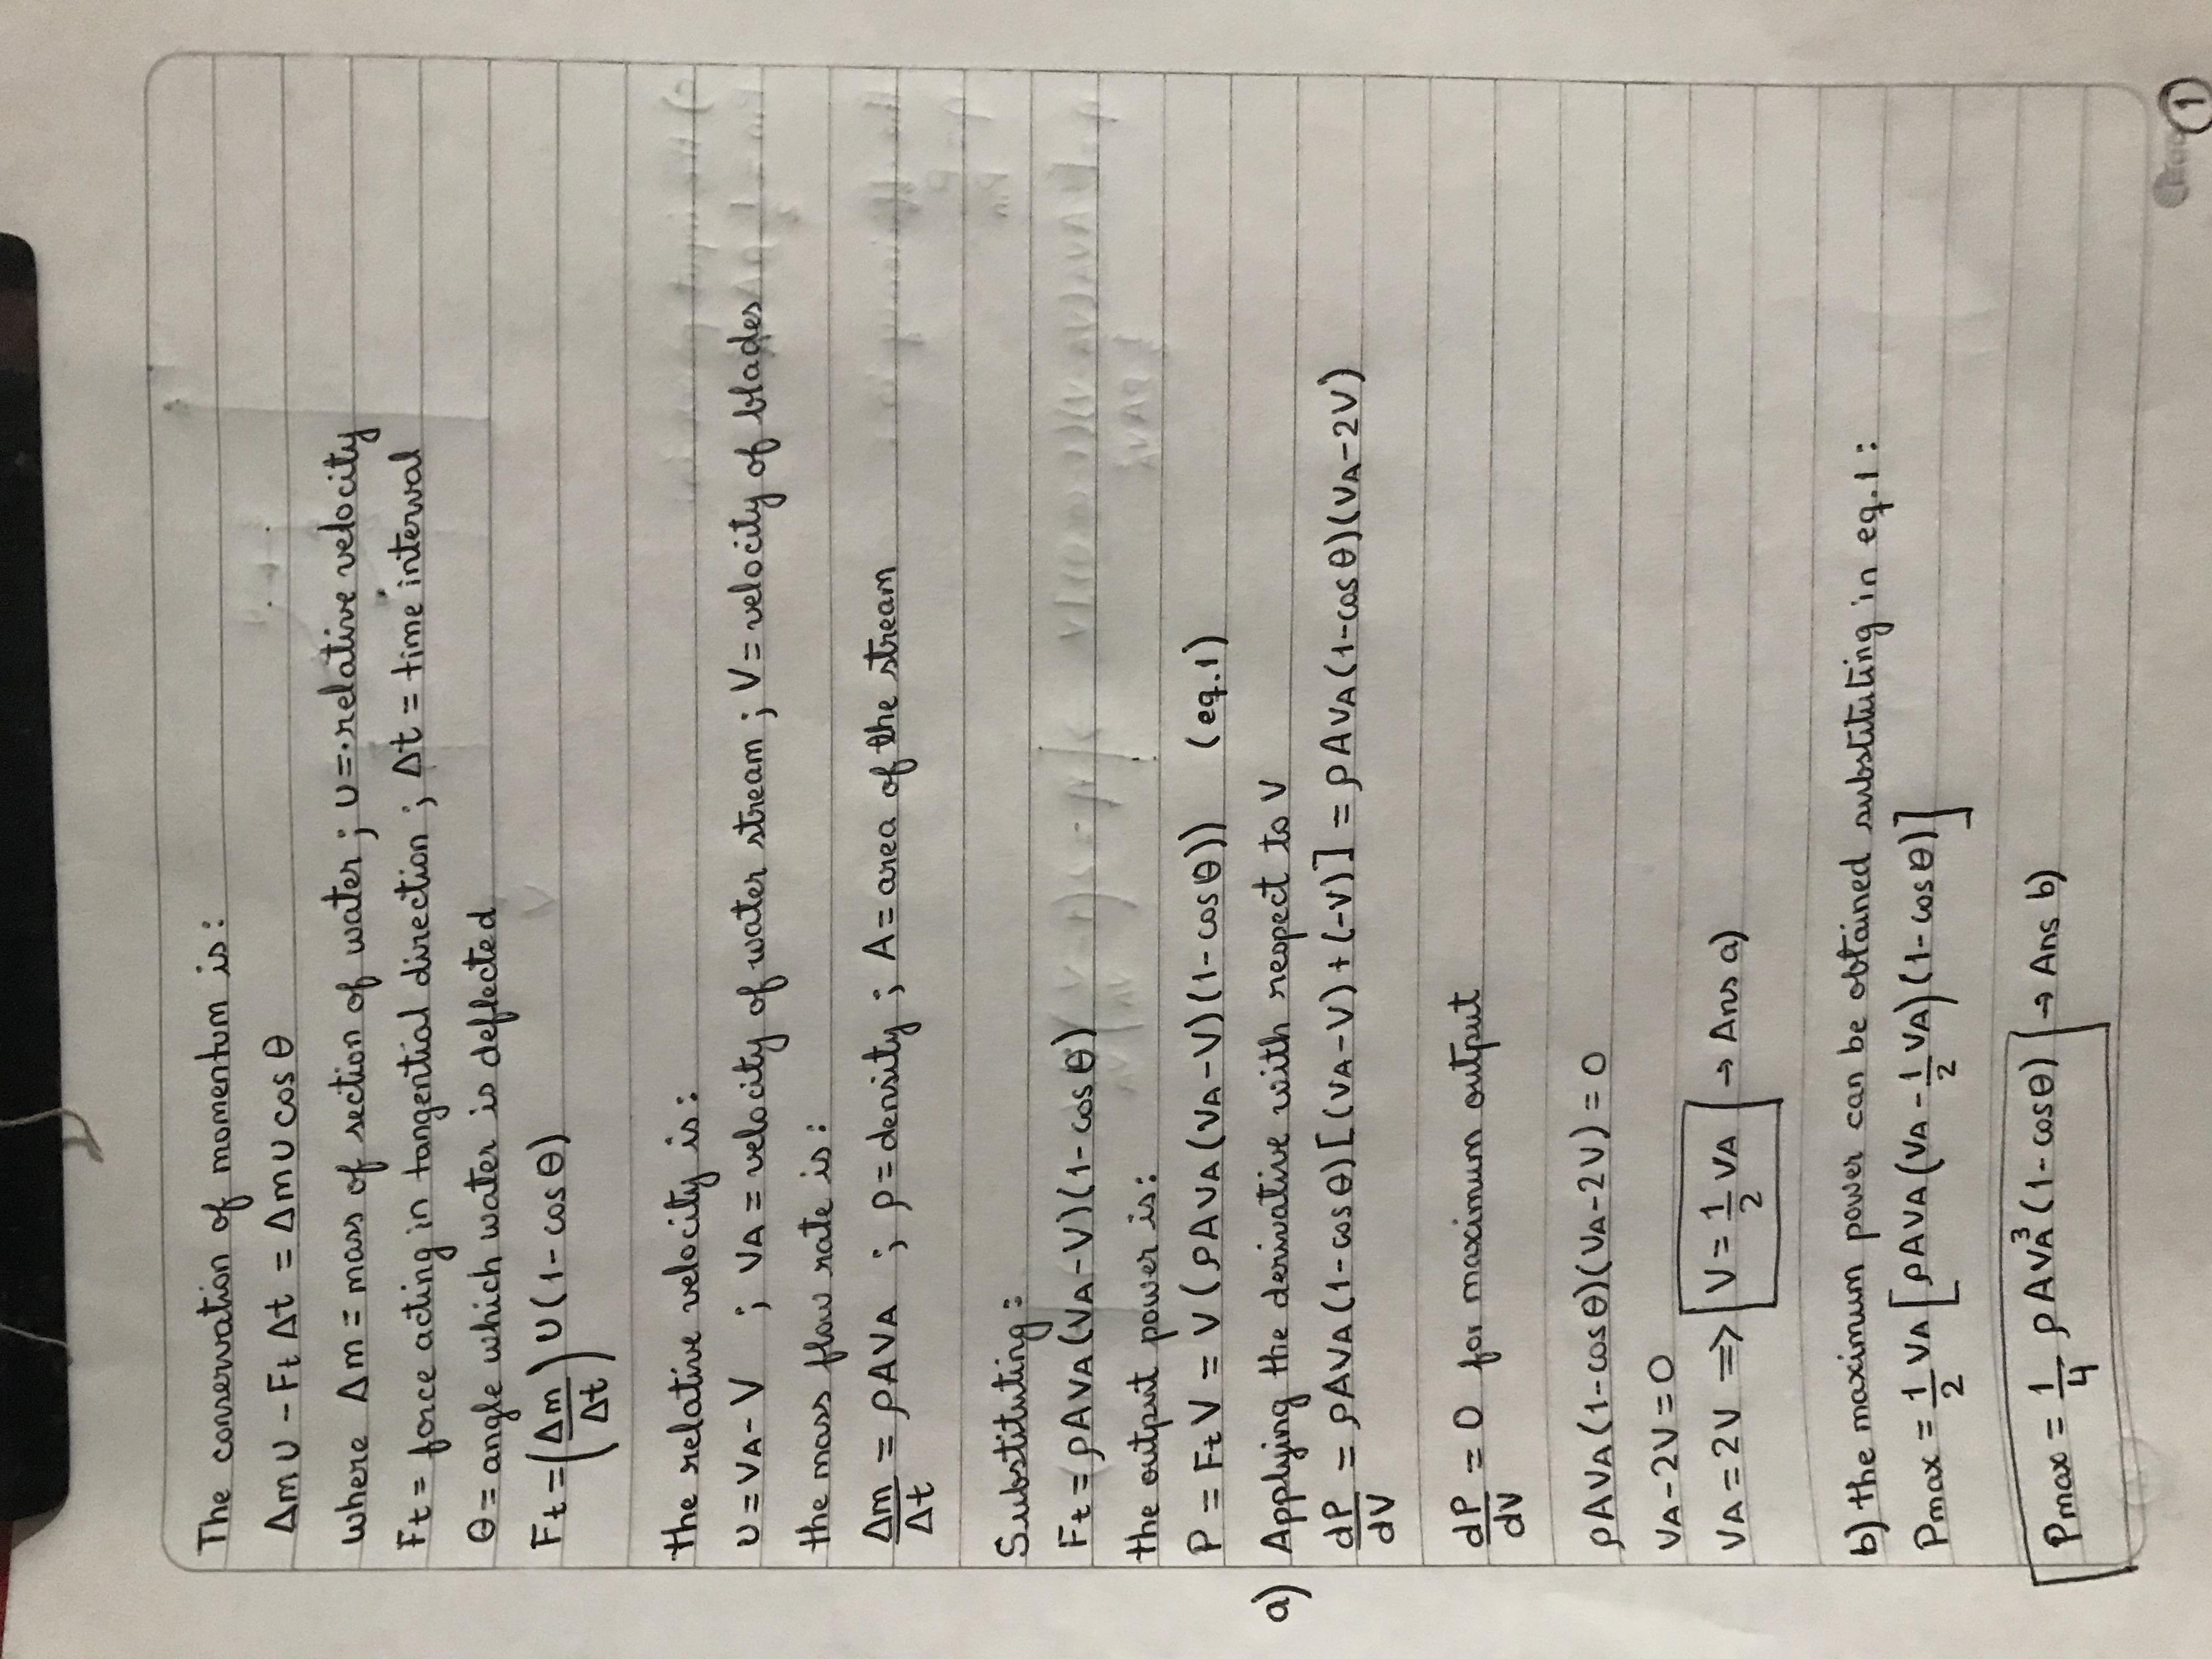 The conservation of momentum is:
Δm u - Ft Δt = Δm u cos θ
where Δm = mass of section of water ; u = relative velocity
Ft = force acting in tangential direction ; Δt = time interval
θ = angle which water is deflected
Ft = (Δm/Δt) u (1 - cos θ)
the relative velocity is:
u = VA - V ; VA = velocity of water stream ; V = velocity of blades
the mass flow rate is:
Δm/Δt = ρAVA ; ρ = density ; A = area of the stream
Substituting:
Ft = ρAVA (VA - V)(1 - cos θ)
the output power is:
P = Ft V = V (ρAVA (VA - V)(1 - cos θ)) (eq.1)
a) Applying the derivative with respect to V
dP/dV = ρAVA (1 - cos θ)[(VA - V) + (-V)] = ρAVA (1 - cos θ)(VA - 2V)
dP/dV = 0 for maximum output
ρAVA (1 - cos θ)(VA - 2V) = 0
VA - 2V = 0
VA = 2V ⇒ V = 1/2 VA → Ans a)
b) the maximum power can be obtained substituting in eq.1:
Pmax = 1/2 VA [ρAVA (VA - 1/2 VA)(1 - cos θ)]
Pmax = 1/4 ρAVA³ (1 - cos θ) → Ans b)
1